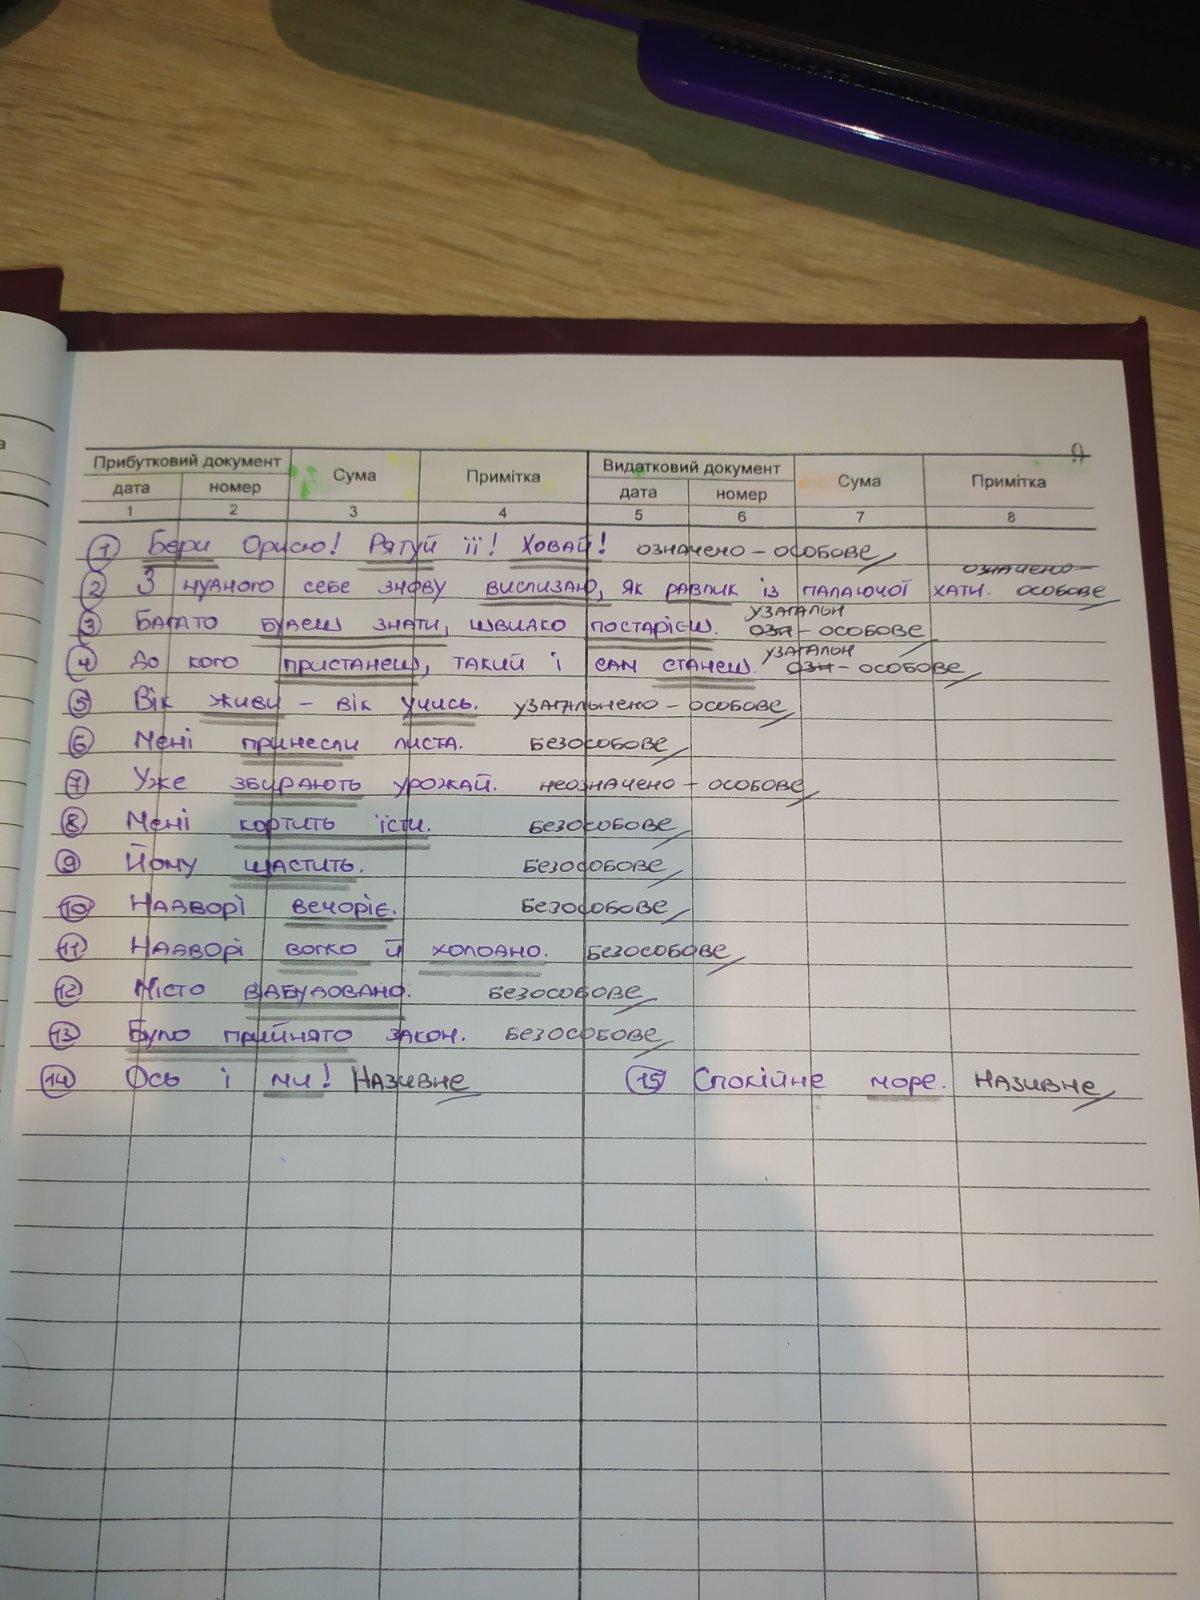 Прибутковий документ Сума Примітка Видатковий документ Сума Примітка
дата номер дата номер
1 2 3 4 5 6 7 8
1 Бери Орисю! Рятуй її! Ховай! означено - особове
означено-
2 З нудного себе знову вислизаю, як равлик із палаючої хати. особове
узагальн
3 Багато будеш знати, швидко постарієш. озн - особове
узагальн
4 До кого пристанеш, такий і сам станеш. озн - особове
5 Вік живи - вік учись. узагальнено - особове
6 Мені принесли листа. Безособове
7 Уже збирають урожай. неозначено - особове
8 Мені кортить їсти. Безособове
9 Йому щастить. Безособове
10 Надворі вечоріє. Безособове
11 Надворі вогко й холодно. Безособове
12 Місто відбудовано. Безособове
13 Було прийнято закон. Безособове
14 Ось і ми! Називне 15 Спокійне море. Називне